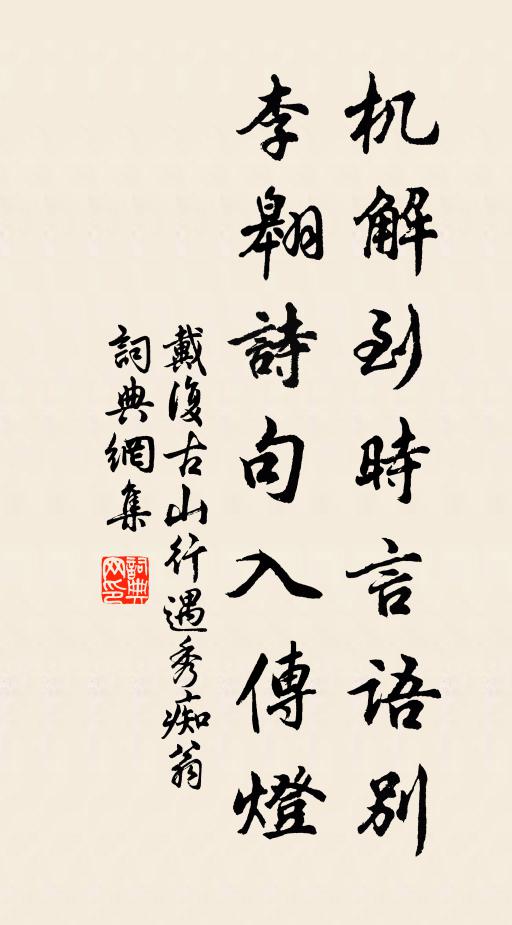 机解到時言語別
李翱詩句入傳燈
戴復古山行遇秀痴翁
詞典網集
詞典网印